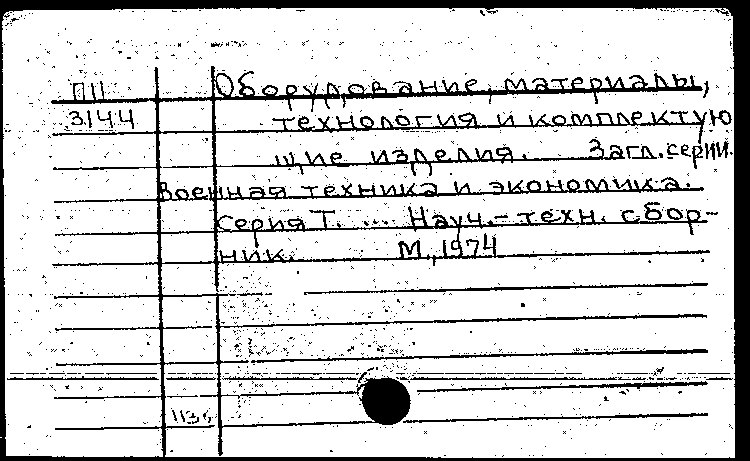 ПII Оборудование, материалы,
3144 технология и комплектую
щие изделия. Загл. серии.
Военная техника и экономика.
Серия Т. ... Науч.-техн. сбор-
ник. М., 1974